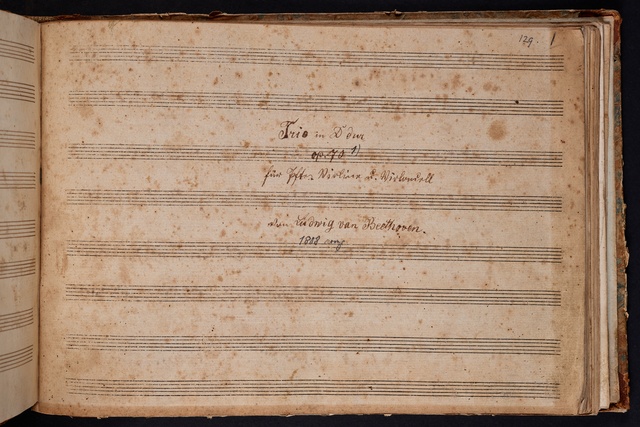 129. 1
Trio in D dur
op. 70 1)
für Pfte. Violine u. Violoncell
von Ludwig van Beethoven.
1808